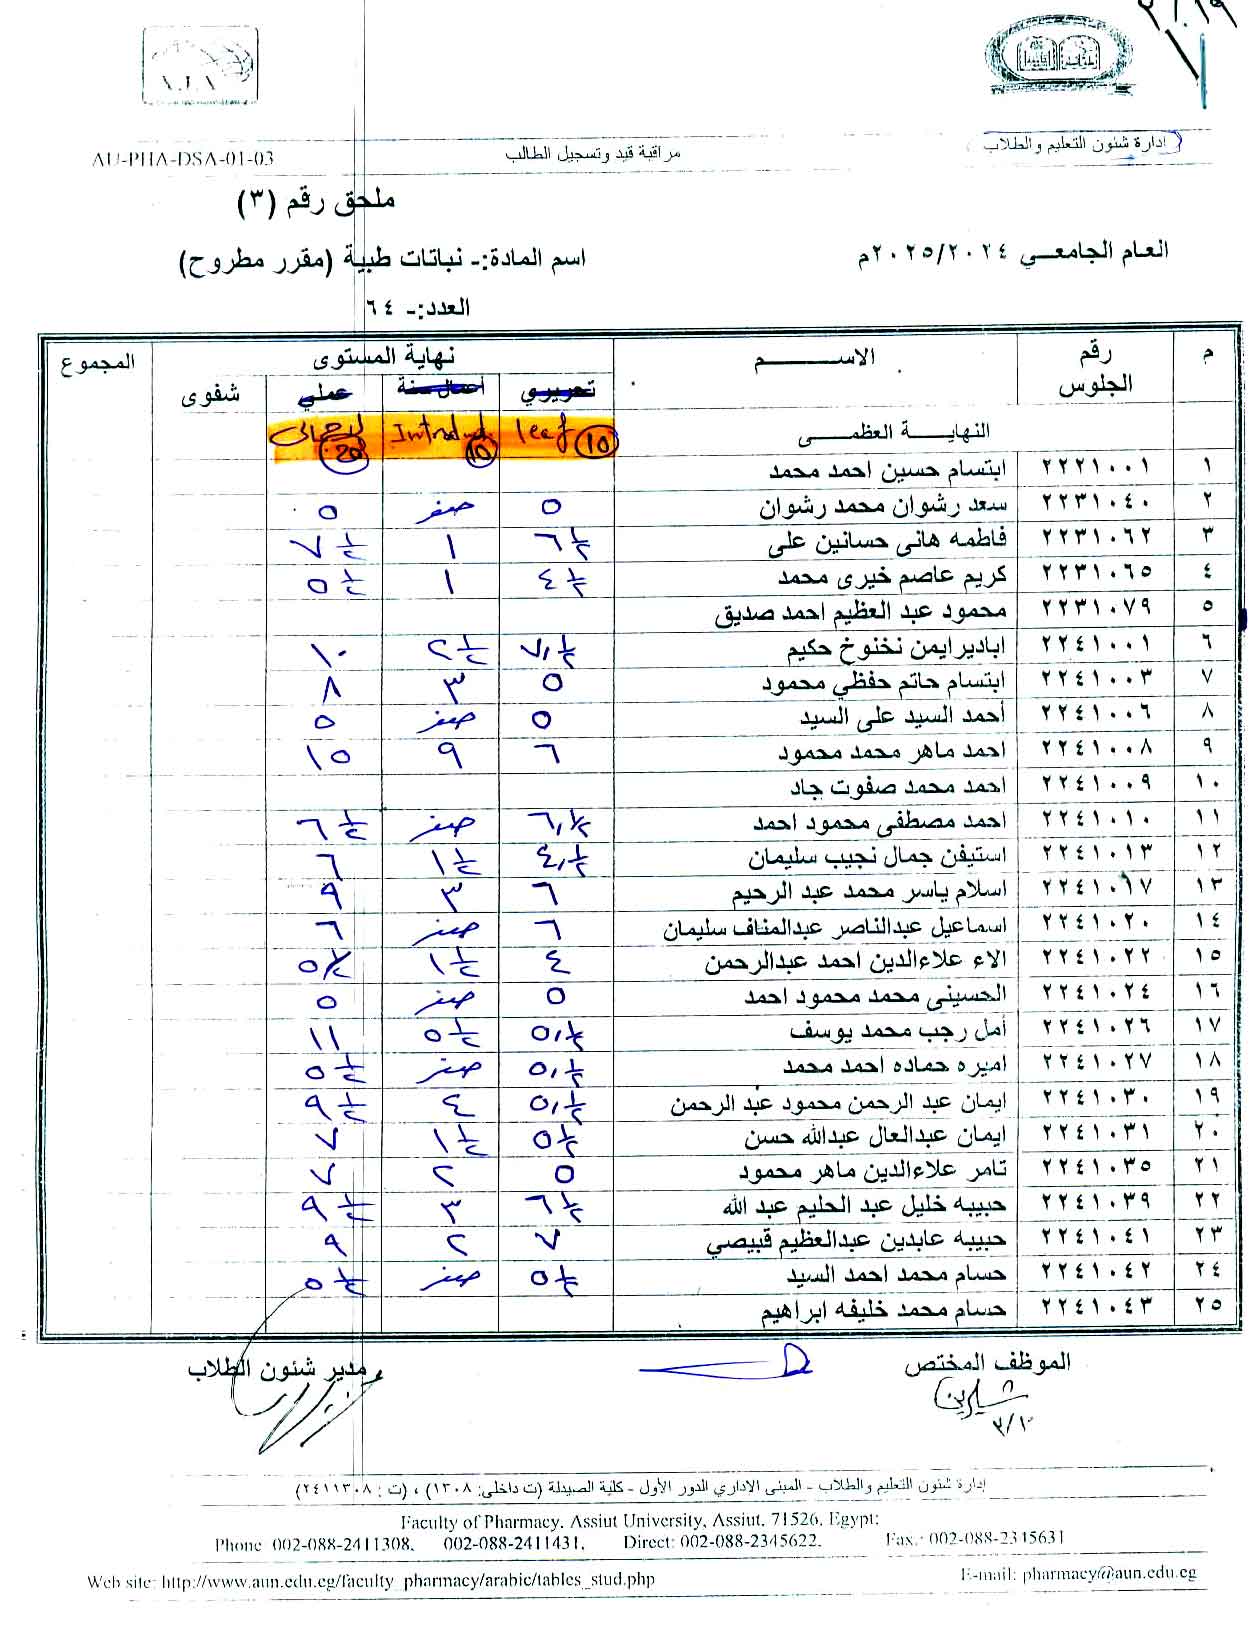 إدارة شئون التعليم والطلاب
مراقبة قيد وتسجيل الطالب
AU-PHA-DSA-01-03
ملحق رقم (٣)
العام الجامعـــي ٢٠٢٥/٢٠٢٤م
اسم المادة:- نباتات طبية (مقرر مطروح)
العدد:- ٦٤
م رقم الجلوس الاســـــــم نهاية المستوى المجموع
تحريري أعمال سنة عملي شفوى
النهايــة العظمى leaf 10 Introduct 10 20
١ ٢٢٢١٠٠١ ابتسام حسين احمد محمد
٢ ٢٢٣١٠٤٠ سعد رشوان محمد رشوان ٥ صفر ٥
٣ ٢٢٣١٠٦٢ فاطمه هانى حسانين على ٦½ ١ ٧½
٤ ٢٢٣١٠٦٥ كريم عاصم خيرى محمد ٤½ ١ ٥½
٥ ٢٢٣١٠٧٩ محمود عبد العظيم احمد صديق
٦ ٢٢٤١٠٠١ اباديرايمن نخنوخ حكيم ٧,½ ٢½ ١٠
٧ ٢٢٤١٠٠٣ ابتسام حاتم حفظي محمود ٥ ٣ ٨
٨ ٢٢٤١٠٠٦ أحمد السيد على السيد ٥ صفر ٥
٩ ٢٢٤١٠٠٨ احمد ماهر محمد محمود ٦ ٩ ١٥
١٠ ٢٢٤١٠٠٩ احمد محمد صفوت جاد
١١ ٢٢٤١٠١٠ احمد مصطفى محمود احمد ٦,½ صفر ٦½
١٢ ٢٢٤١٠١٣ استيفن جمال نجيب سليمان ٤,½ ١½ ٦
١٣ ٢٢٤١٠١٧ اسلام ياسر محمد عبد الرحيم ٦ ٣ ٩
١٤ ٢٢٤١٠٢٠ اسماعيل عبدالناصر عبدالمناف سليمان ٦ صفر ٦
١٥ ٢٢٤١٠٢٢ الاء علاءالدين احمد عبدالرحمن ٤ ١½ ٥½
١٦ ٢٢٤١٠٢٤ الحسينى محمد محمود احمد ٥ صفر ٥
١٧ ٢٢٤١٠٢٦ أمل رجب محمد يوسف ٥,½ ٥½ ١١
١٨ ٢٢٤١٠٢٧ اميره حماده احمد محمد ٥,½ صفر ٥½
١٩ ٢٢٤١٠٣٠ ايمان عبد الرحمن محمود عبد الرحمن ٥,½ ٤ ٩½
٢٠ ٢٢٤١٠٣١ ايمان عبدالعال عبدالله حسن ٥½ ١½ ٧
٢١ ٢٢٤١٠٣٥ تامر علاءالدين ماهر محمود ٥ ٢ ٧
٢٢ ٢٢٤١٠٣٩ حبيبه خليل عبد الحليم عبد الله ٦½ ٣ ٩½
٢٣ ٢٢٤١٠٤١ حبيبه عابدين عبدالعظيم قبيصي ٧ ٢ ٩
٢٤ ٢٢٤١٠٤٢ حسام محمد احمد السيد ٥½ صفر ٥½
٢٥ ٢٢٤١٠٤٣ حسام محمد خليفه ابراهيم
الموظف المختص مدير شئون الطلاب
شيرين
٣/١٠
إدارة شئون التعليم والطلاب - المبنى الاداري الدور الأول - كلية الصيدلة (ت داخلى: ١٣٠٨) ، (ت : ٢٤١١٣٠٨)
Faculty of Pharmacy, Assiut University, Assiut, 71526, Egypt:
Phone 002-088-2411308, 002-088-2411431, Direct: 002-088-2345622, Fax.: 002-088-2345631
Web site: http://www.aun.edu.eg/faculty_pharmacy/arabic/tables_stud.php E-mail: pharmacy@aun.edu.eg